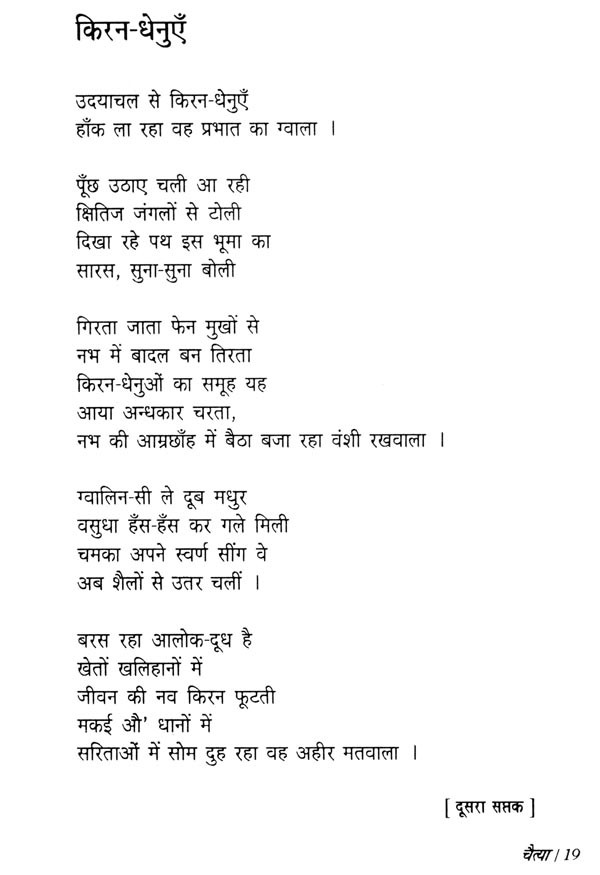 किरन-धेनुएँ
उदयाचल से किरन-धेनुएँ
हाँक ला रहा वह प्रभात का ग्वाला ।
पूँछ उठाए चली आ रही
क्षितिज जंगलों से टोली
दिखा रहे पथ इस भूमा का
सारस, सुना-सुना बोली
गिरता जाता फेन मुखों से
नभ में बादल बन तिरता
किरन-धेनुओं का समूह यह
आया अन्धकार चरता,
नभ की आम्रछाँह में बैठा बजा रहा वंशी रखवाला ।
ग्वालिन-सी ले दूब मधुर
वसुधा हँस-हँस कर गले मिली
चमका अपने स्वर्ण सींग वे
अब शैलों से उतर चलीं ।
बरस रहा आलोक-दूध है
खेतों खलिहानों में
जीवन की नव किरन फूटती
मकई औ' धानों में
सरिताओं में सोम दुह रहा वह अहीर मतवाला ।
[ दूसरा सप्तक ]
चैत्या / 19